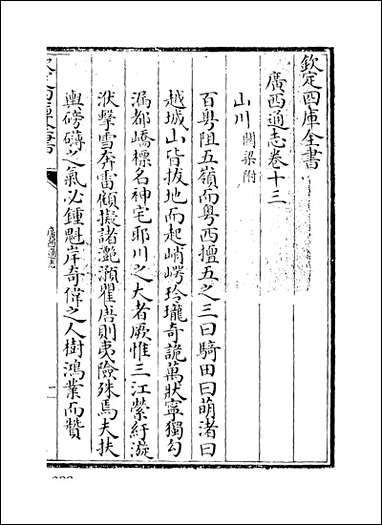 欽定四庫全書
廣西通志卷十三
山川 關梁附
百粤阻五嶺而粤西擅五之三曰騎田曰萌渚曰
越城山皆拔地而起峭崿玲瓏奇詭萬狀寧獨勾
漏都嶠標名神宅耶川之大者厥惟三江縈紆漩
洑擊雪奔雷顧擬諸灔澦瞿唐則夷險殊焉夫扶
輿磅礴之氣必鍾魁岸奇偉之人樹鴻業而贊